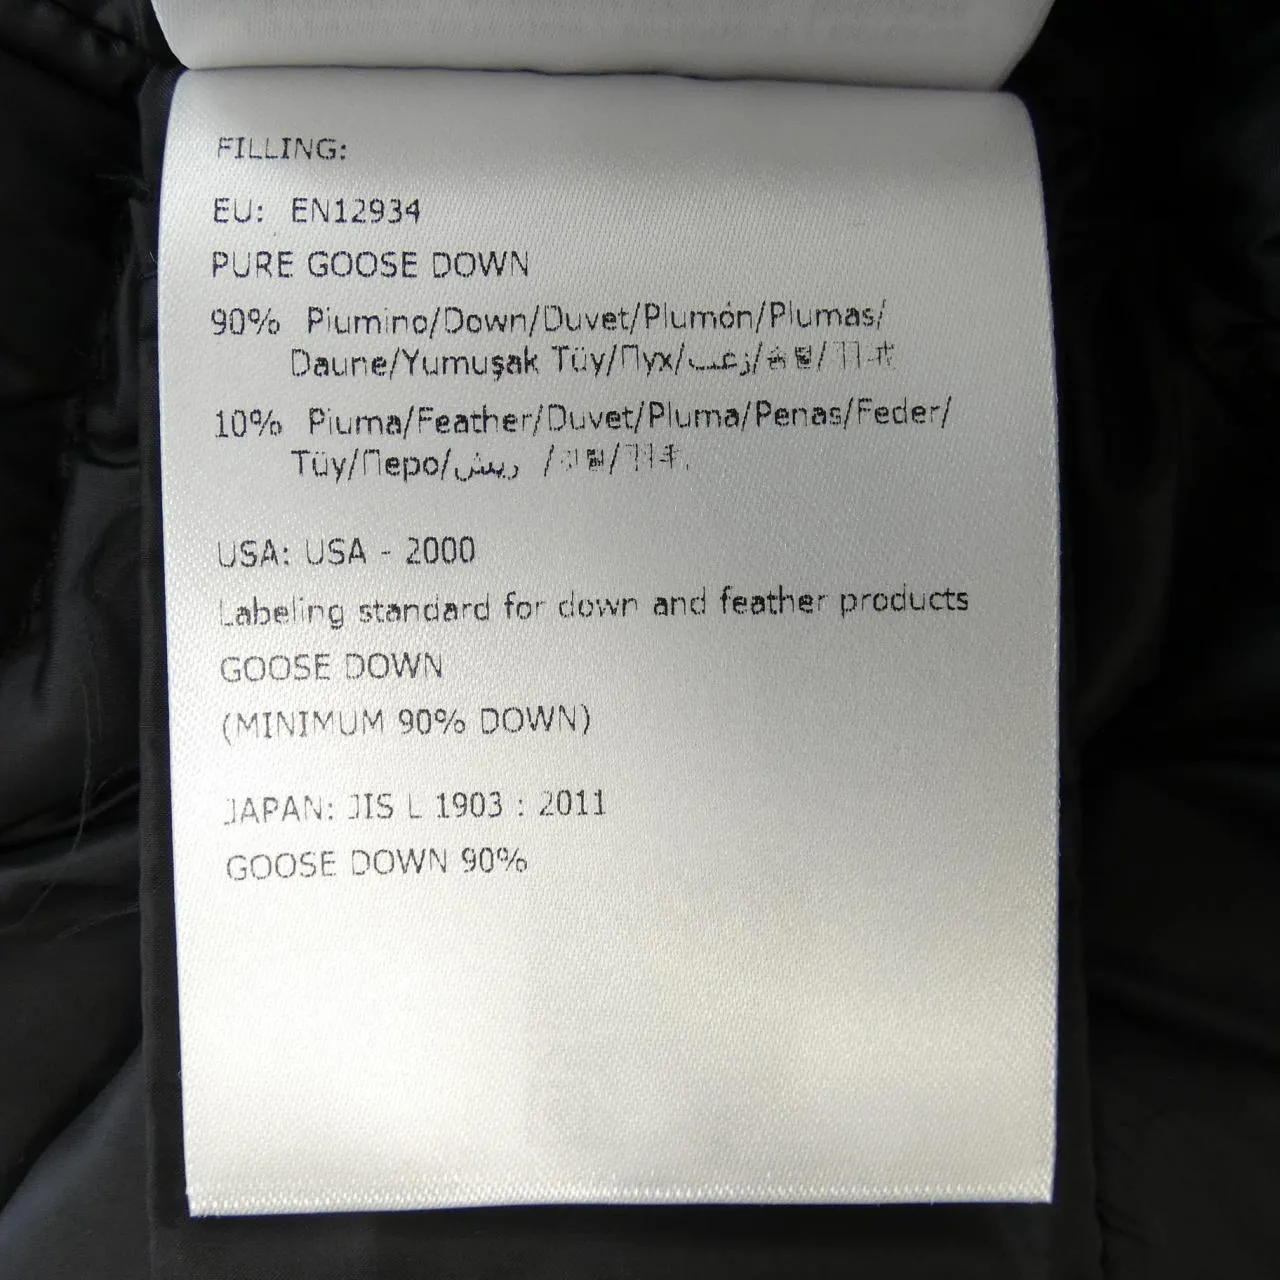 FILLING:
EU: EN12934
PURE GOOSE DOWN
90% Piumino/Down/Duvet/Plumón/Plumas/
Daune/Yumuşak Tüy/Пух/زغب/솜털/
10% Piuma/Feather/Duvet/Pluma/Penas/Feder/
Tüy/Перо/ريش /깃털/
USA: USA - 2000
Labeling standard for down and feather products
GOOSE DOWN
(MINIMUM 90% DOWN)
JAPAN: JIS L 1903 : 2011
GOOSE DOWN 90%